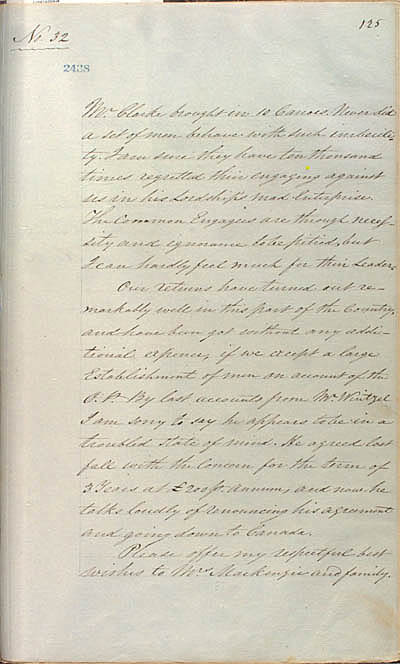 No 32
125
2438
Mr. Clarke brought in 10 Canoes. Never did
a set of men behave with such imbecili-
ty. I am sure they have ten thousand
times regretted their engaging against
us in his Lordship's mad Enterprise.
The Common Engages are through neces-
sity and ignorance to be pitied, but
I can hardly feel much for their Leaders
Our returns have turned out re-
markably well in this part of the Country,
and have been got without any addi-
tional expence, if we except a large
Establishment of men on account of the
O.P. By last accounts from Mr. Wintzel
I am sorry to say he appears to be in a
troubled state of mind. He agreed last
fall with the Concern for the term of
3 Years at £200 pr. annum, and now he
talks loudly of renouncing his agreement
and going down to Canada.
Please offer my respectful best
wishes to Mrs. MacKenzie and family.